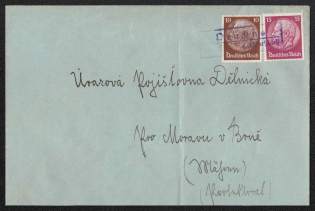 10 10 15 15
Deutsches Reich Deutsches Reich
Úrazová Pojišťovna Dělnická
Pro Moravu v Brně
(Mähren)
(Protektorat)